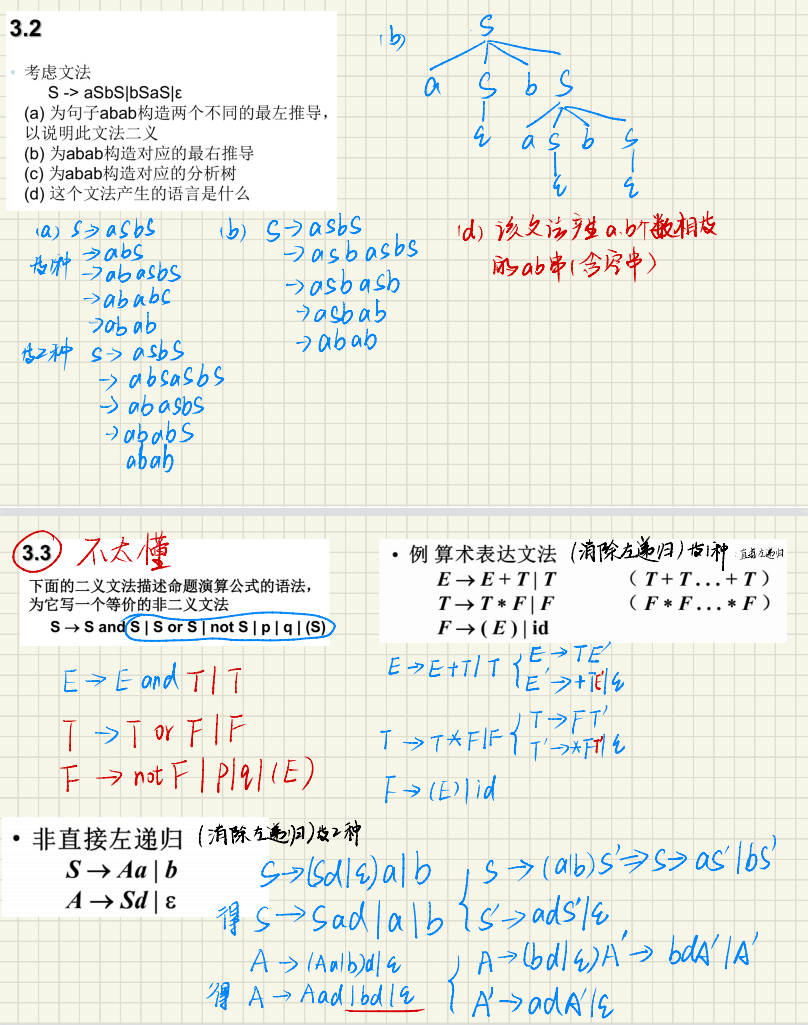 3.2
• 考虑文法
S -> aSbS|bSaS|ε
(a) 为句子abab构造两个不同的最左推导，
以说明此文法二义
(b) 为abab构造对应的最右推导
(c) 为abab构造对应的分析树
(d) 这个文法产生的语言是什么
(b)
S
a S b S
ε a S b S
ε ε
(a) S→aSbS
第1种 →abS
→abaSbS
→ababS
→abab
第2种 S→aSbS
→abSaSbS
→abaSbS
→ababS
abab
(b) S→aSbS
→aSbaSbS
→aSbaSb
→aSbab
→abab
(d) 该文法产生a.b个数相等
的ab串(含空串)
3.3 不太懂
下面的二义文法描述命题演算公式的语法，
为它写一个等价的非二义文法
S → S and S | S or S | not S | p | q | (S)
E → E and T | T
T → T or F | F
F → not F | p|q|(E)
• 例 算术表达文法 (消除左递归)第1种：直接左递归
E → E + T | T （ T + T . . . + T ）
T → T * F | F （ F * F . . . * F ）
F → ( E ) | id
E→E+T|T { E→TE'
E'→+TE'|ε
T→T*F|F { T→FT'
T'→*FT'|ε
F→(E)|id
• 非直接左递归 (消除左递归)第2种
S → Aa | b
A → Sd | ε
S→(Sd|ε)a|b
得 S→Sad|a|b
{ S→(a|b)S'⇒S→aS'|bS'
S'→adS'|ε
A→(Aa|b)d|ε
得 A→Aad|bd|ε
{ A→(bd|ε)A'→bdA'|A'
A'→adA'|ε